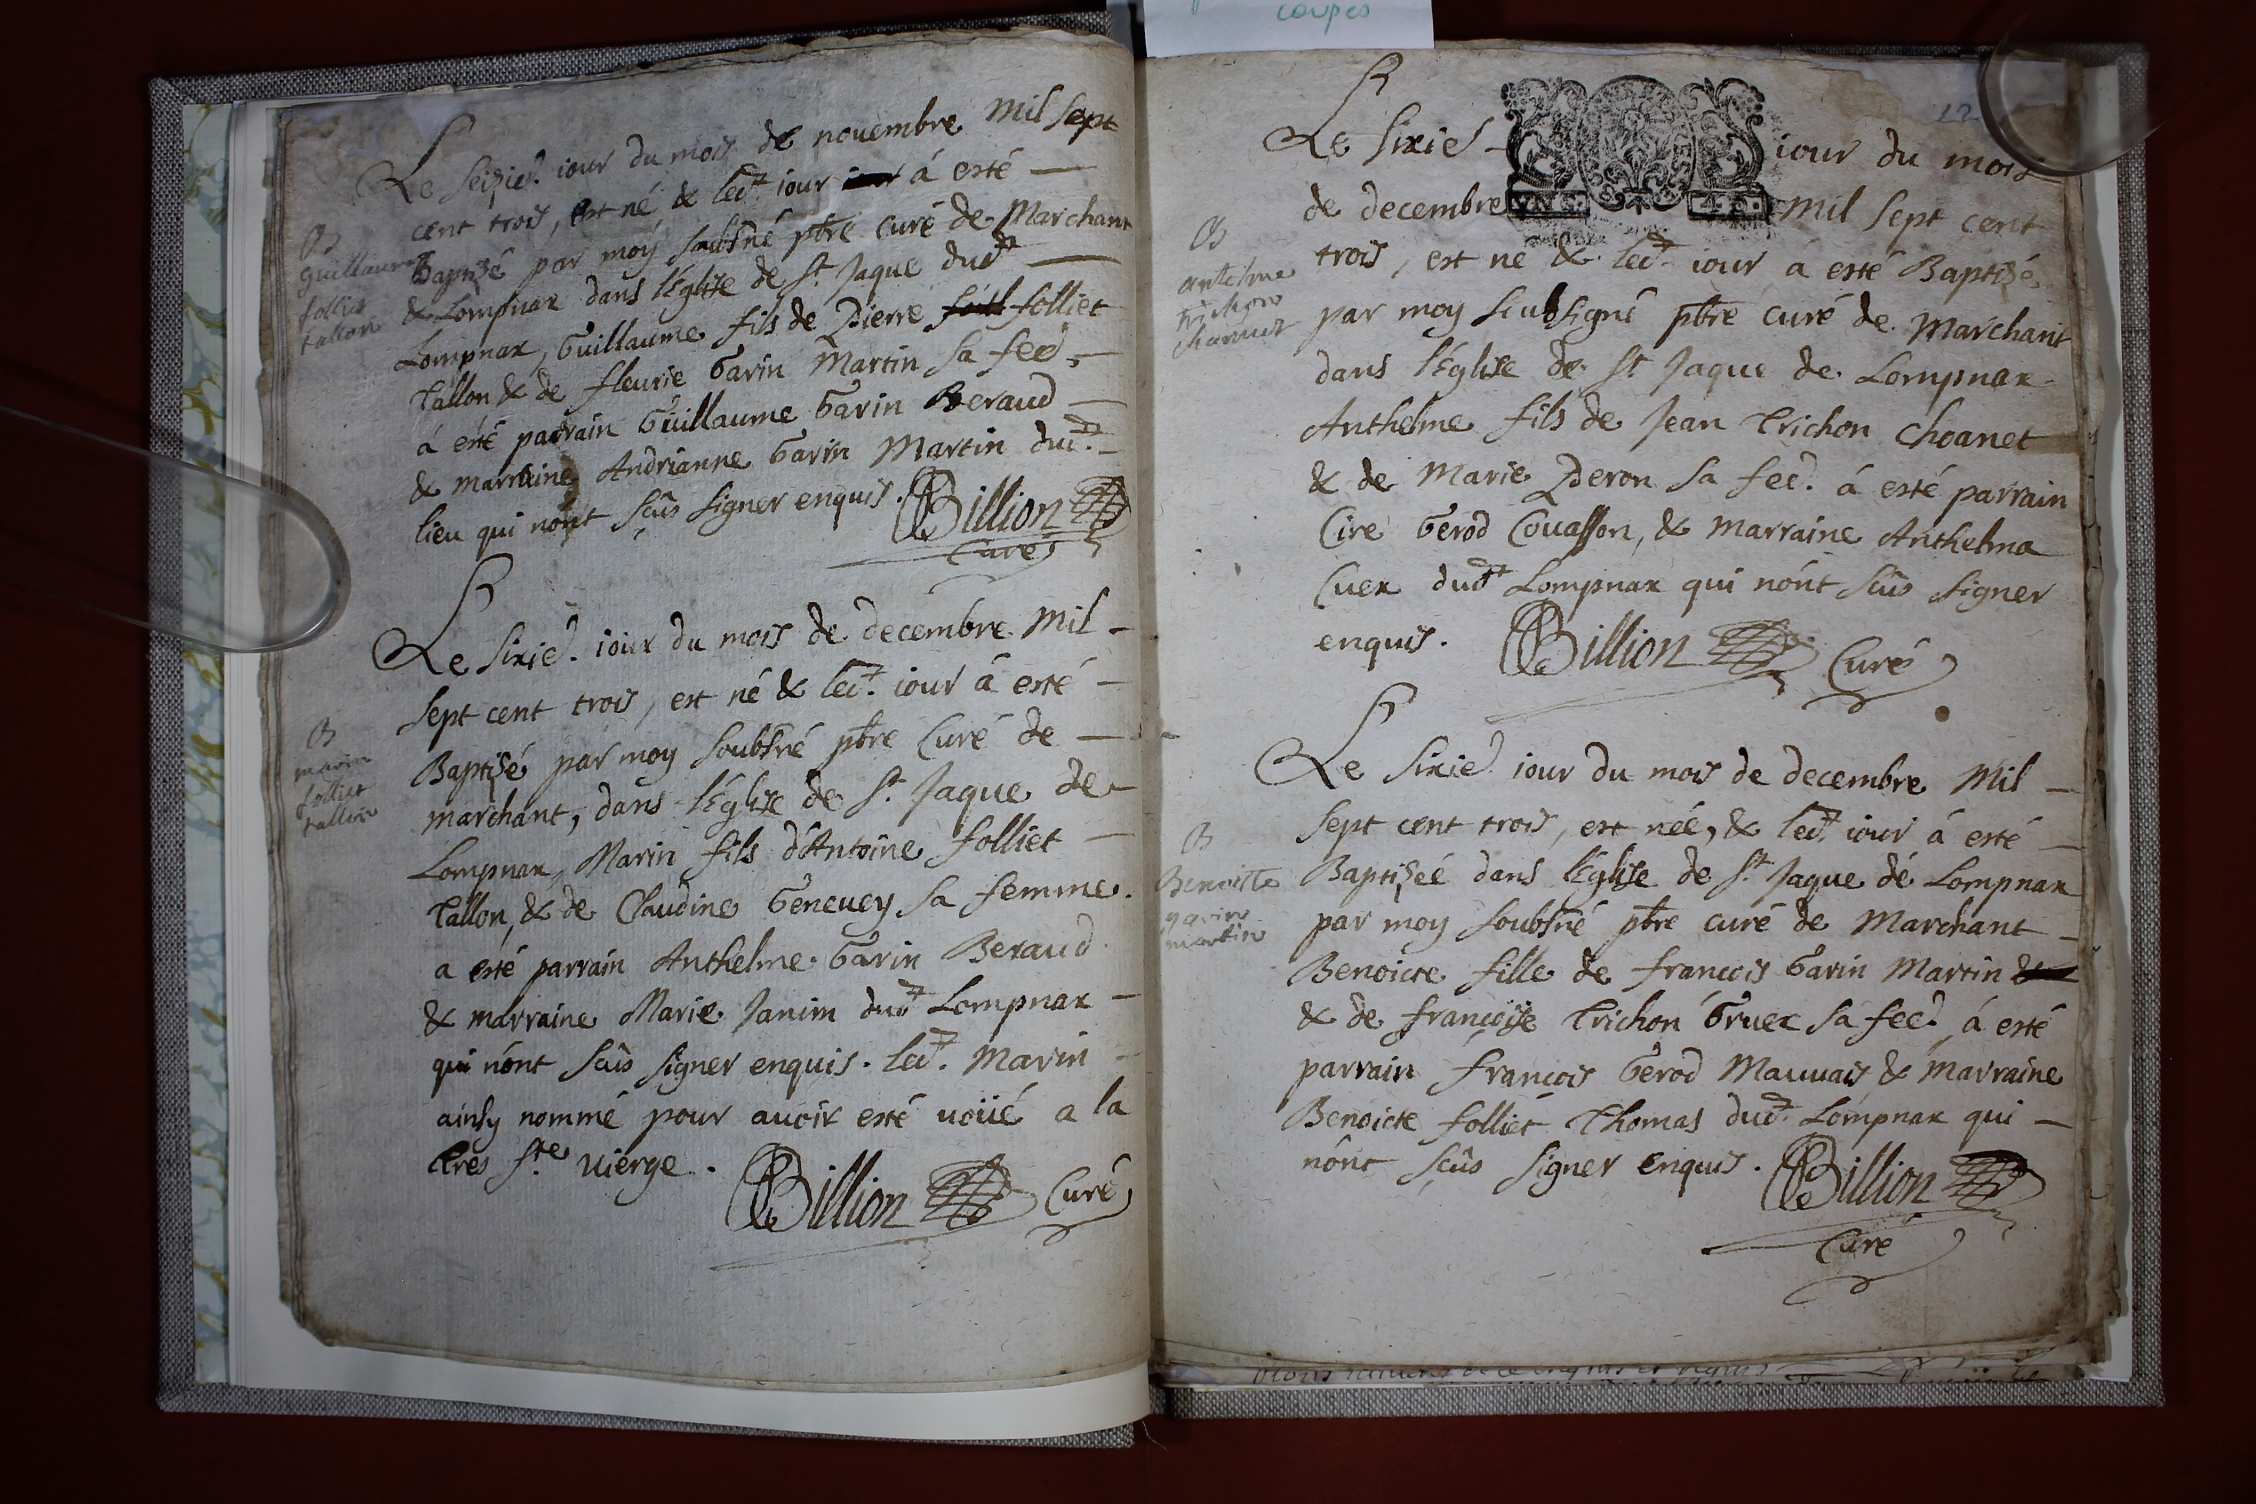 coupes
Le seizie. iour du mois de novembre mil sept
cent trois, est né, & led.t iour à esté
B
guillaume
folliet
tallon
Baptizé par moy soubsné pbre curé de Marchant
& Lompnax dans l'Eglise de St Jaque dud.t
Lompnax, Guillaume fils de Pierre folliet
Tallon & de fleurie Garin Martin sa feē.
á esté parrain Guillaume Garin Beraud
& marraine Andrianne Garin Martin dud.t
lieu qui nont sçûs signer enquis. Billion
Curé
Le sixie. iour du mois de decembre mil
sept cent trois, est né & led.t iour á esté
B
marin
folliet
tallon
Baptizé par moy soubsné pbre Curé de
marchant, dans l'Eglise de St. Jaque de
Lompnax, Marin fils d'Antoine folliet
Tallon, & de Claudine Genevey sa femme.
a esté parrain Anthelme Garin Beraud
& marraine Marie Janin dud.t Lompnax
qui nónt sçûs signer enquis. led.t Marin
ainsy nommé pour avoir esté voüé a la
tres Ste vierge.
Billion Curé
12
Le sixie iour du mois
de decembre mil sept cent
B
antelme
trichon
trois, est né & led.t iour á esté Baptizé
par moy soubsigné pbre curé de Marchant
dans l'Eglise de St Jaque de Lompnax
Anthelme fils de Jean Trichon Choanet
& de Marie Peron sa feē. á esté parrain
Cire Gerod Couasson, & marraine Anthelma
Cuex dud.t Lompnax qui nónt sçûs signer
enquis. Billion Curé
Le sixie. iour du mois de decembre mil
sept cent trois, est née, & led.t iour á esté
B
Benoiste
garin
martin
Baptizéé dans l'Eglise de St Jaque dé Lompnax
par moy soubsné pbre curé de Marchant
Benoicte fille de francois Garin Martin
& de françoise Trichon Gruex sa feē. á esté
parrain francois Gerod Mauvais & marraine
Benoicte folliet Thomas dud.t Lompnax qui
nônt sçûs signer enquis. Billion
Curé